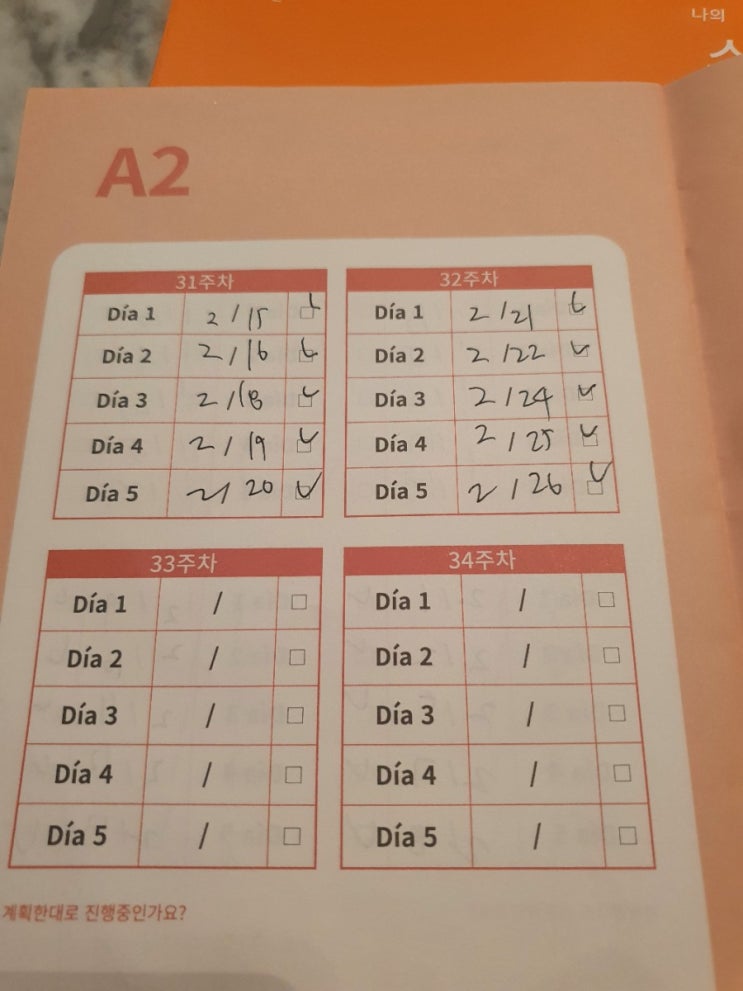 나의
A2
31주차
Día 1 2/15
Día 2 2/16
Día 3 2/18
Día 4 2/19
Día 5 2/20
32주차
Día 1 2/21
Día 2 2/22
Día 3 2/24
Día 4 2/25
Día 5 2/26
33주차
Día 1 /
Día 2 /
Día 3 /
Día 4 /
Día 5 /
34주차
Día 1 /
Día 2 /
Día 3 /
Día 4 /
Día 5 /
계획한대로 진행중인가요?